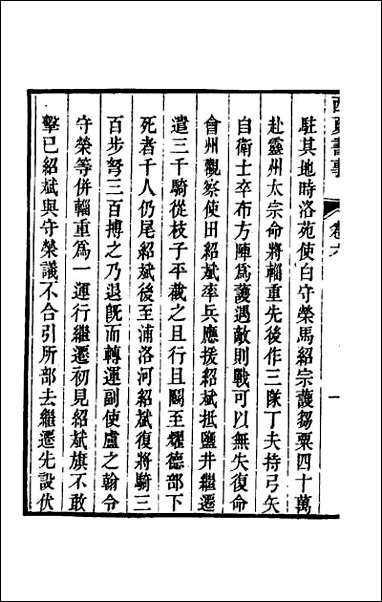 西夏書事 卷六 一
駐其地時洛苑使白守榮馬紹宗護芻粟四十萬
赴靈州太宗命將輜重先後作三隊丁夫持弓矢
自衛士卒布方陣爲護遇敵則戰可以無失復命
會州觀察使田紹斌率兵應援紹斌抵鹽井繼遷
遣三千騎從枝子平截之且行且鬬至耀德部下
死者千人仍尾紹斌後至浦洛河紹斌復將騎三
百步弩三百搏之乃退既而轉運副使盧之翰令
守榮等併輜重爲一運行繼遷初見紹斌旗不敢
擊已紹斌與守榮議不合引所部去繼遷先設伏